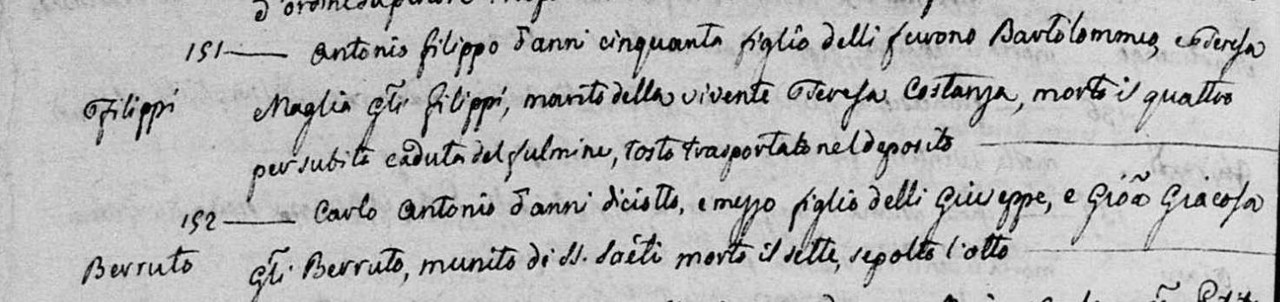 d'ordine superiore
151 — Antonio filippo d'anni cinquanta figlio delli furono Bartolommeo, e Teresa
Filippi Maglia gli filippi, marito della vivente Teresa Costanza, morto il quattro
per subita caduta del fulmine, tosto trasportato nel deposito —
152 — Carlo Antonio d'anni diciotto, e mezzo figlio delli Giuseppe, e Gioã Giacosa
Berruto gli Berruto, munito di SS. Saẽti morto il sette, sepolto l'otto —